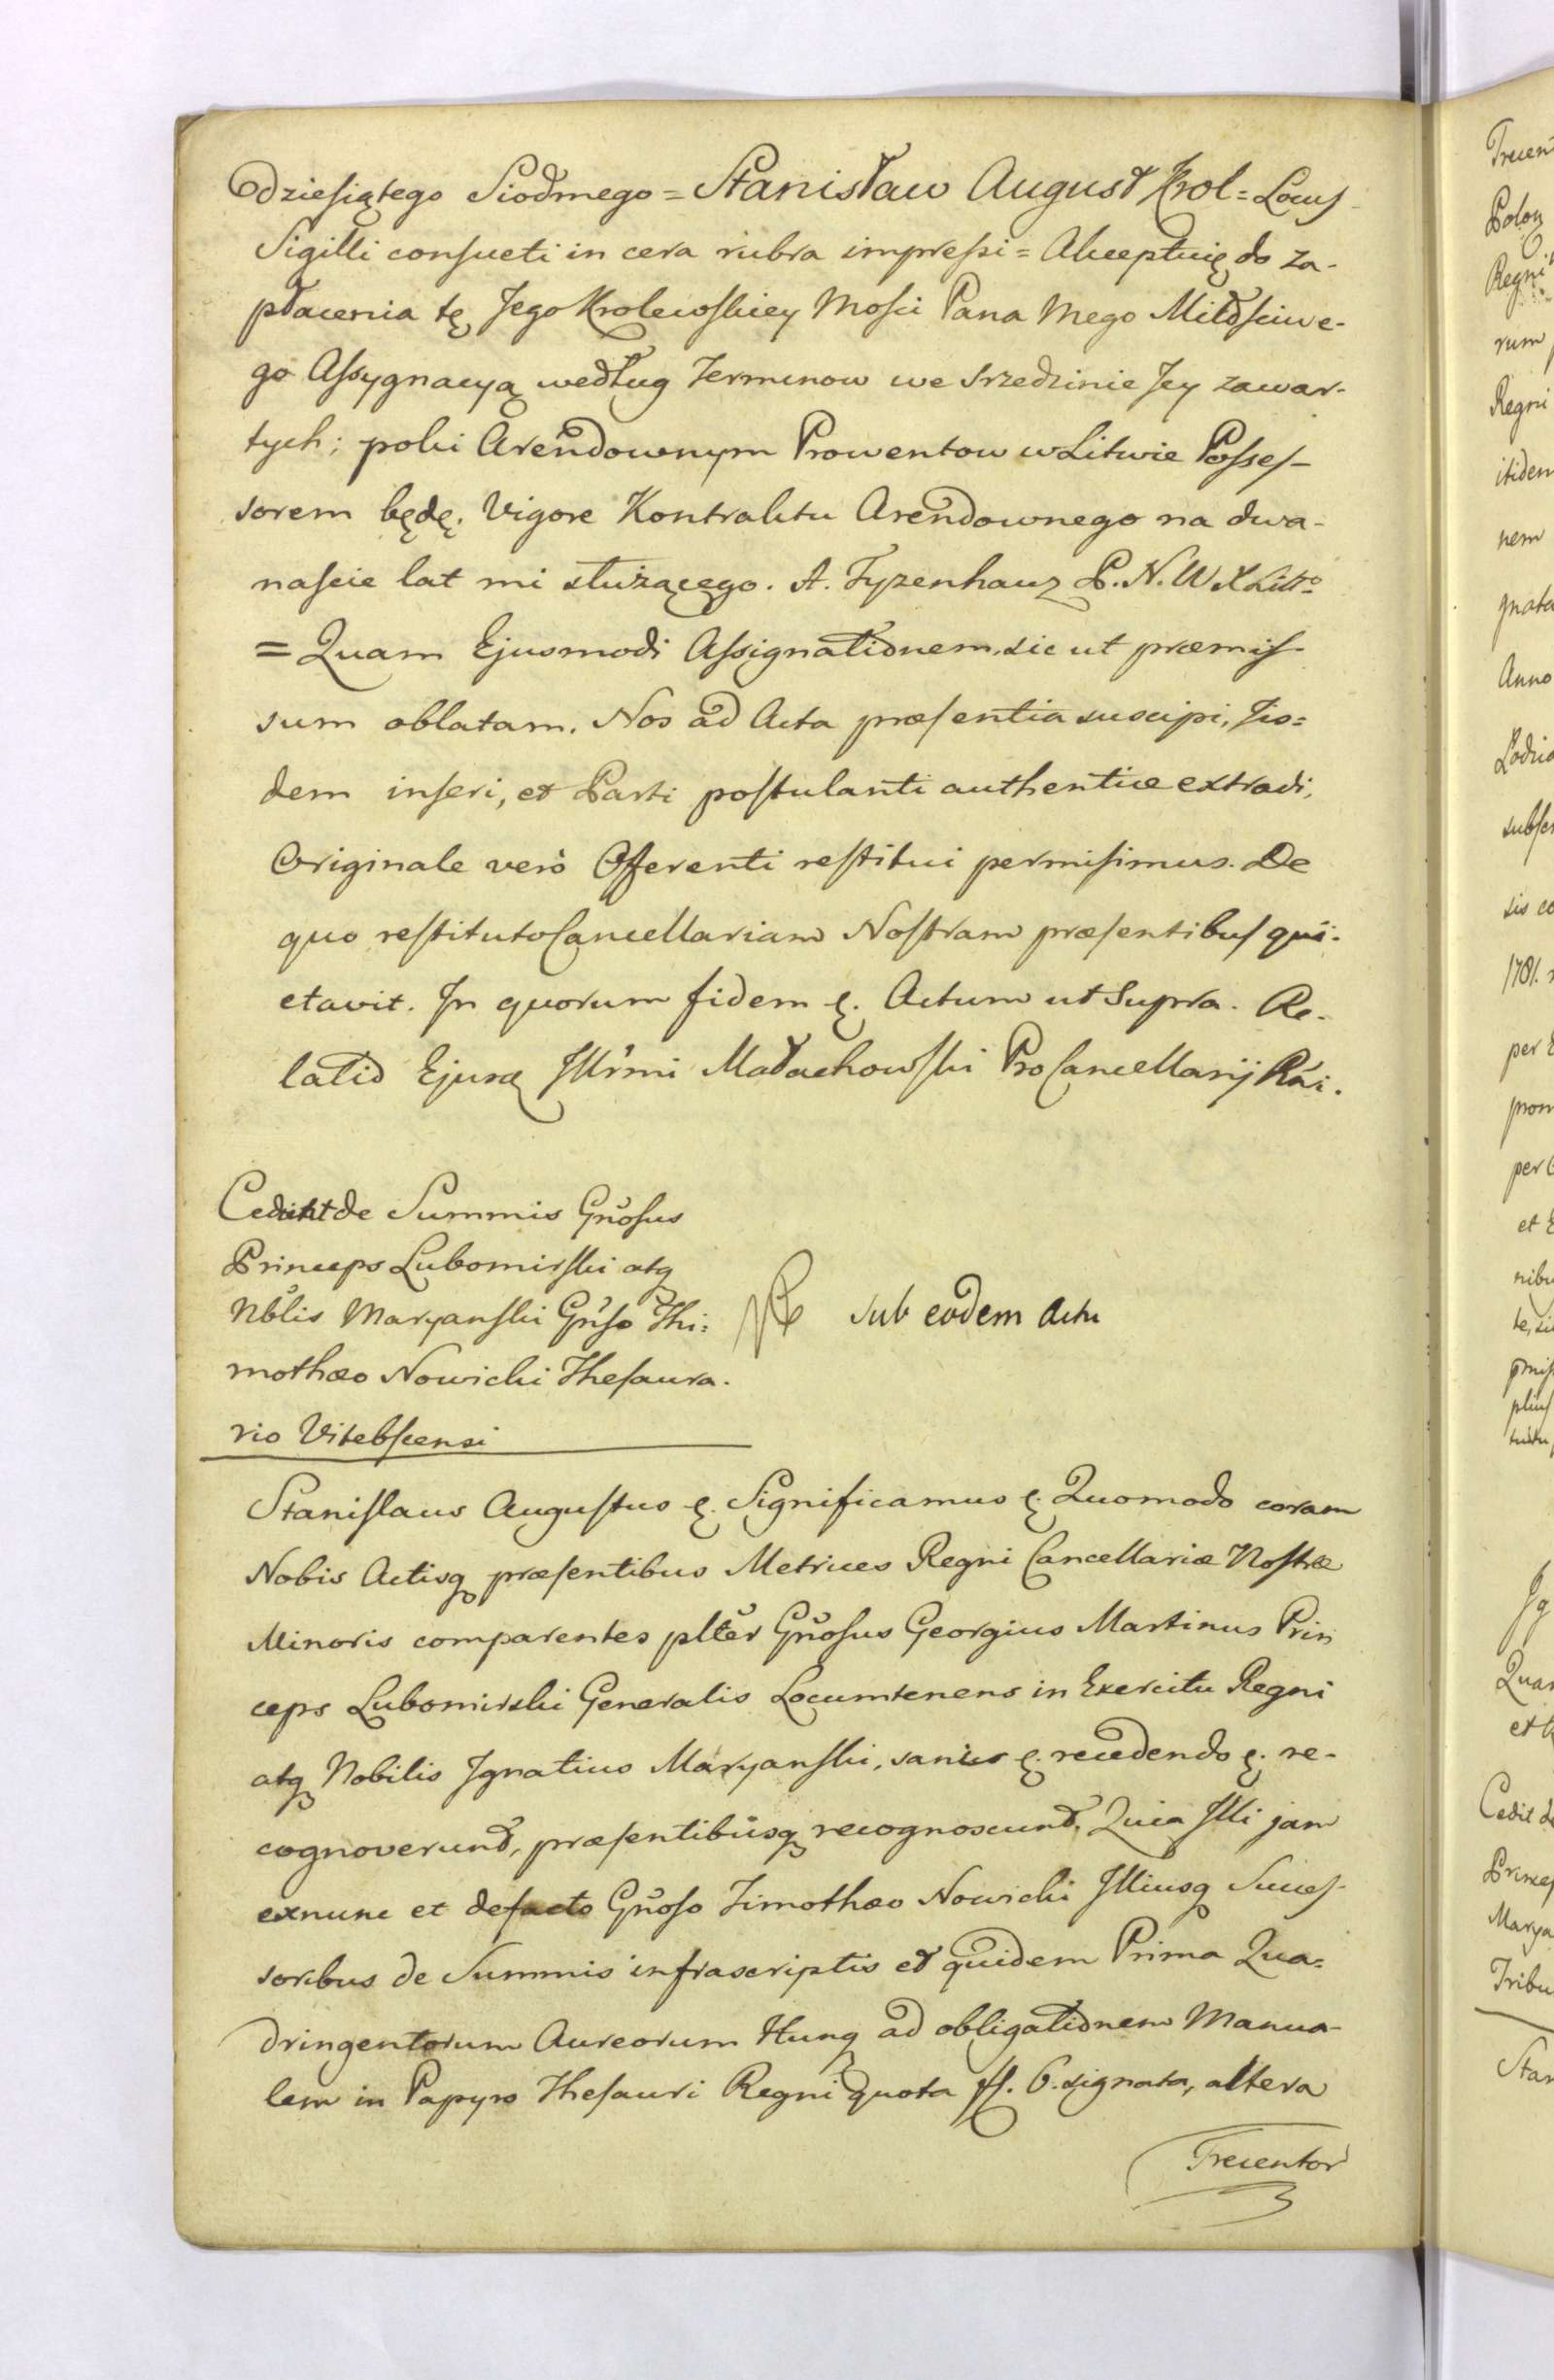 dziesiątego Siodmego = Stanisław August Krol = Locus
Sigilli consueti in cera rubra impressi = Akceptuię do za-
płacenia tę Jego Krolewskiey Mosci Pana Mego Miłosciwe-
go Assygnacyą według Terminow we srzedzinie Jey zawar-
tych; poki Arendownym Prowentow w Litwie Posses-
sorem będę. Vigore Kontraktu Arendownego na dwa-
nascie lat mi służącego. A. Tyzenhauz P. N. W X Litt:
= Quam Ejusmodi Assignationem, sic ut præmis-
sum oblatam. Nos ad Acta præsentia suscipi, Iis=
dem inseri, et Parti postulanti authentice extradi,
Originale verò Offerenti restitui permisimus. De
quo restituto Cancellariam Nostram præsentibus qui-
etavit. In quorum fidem &. Actum ut Supra. Re-
latio Ejusq Illrmi Małachowski Pro Cancellarij Rni.
Cedit de Summis Gnosus
Princeps Lubomirski atq
Nblis Maryanski Gnso Thi=
mothæo Nowicki Thesaura-
rio Vitebscensi
sub eodem Actu
Stanislaus Augustus &. Significamus &. Quomodo coram
Nobis Actisq præsentibus Metrices Regni Cancellariæ Nostræ
Minoris comparentes plter Gnosus Georgius Martinus Prin
ceps Lubomirski Generalis Locumtenens in Exercitu Regni
atq Nobilis Ignatius Maryanski, sanius &. recedendo &. re-
cognoverunt, præsentibusq recognoscunt. Quia Illi jam
exnunc et defacto Gnoso Timothæo Nowicki Illiusq Succes-
soribus de Summis infrascriptis et quidem Prima Qua=
dringentorum Aureorum Hung ad obligationem Manua-
lem in Papyro Thesauri Regni quota ff. 6. signata, altera
Trecentor